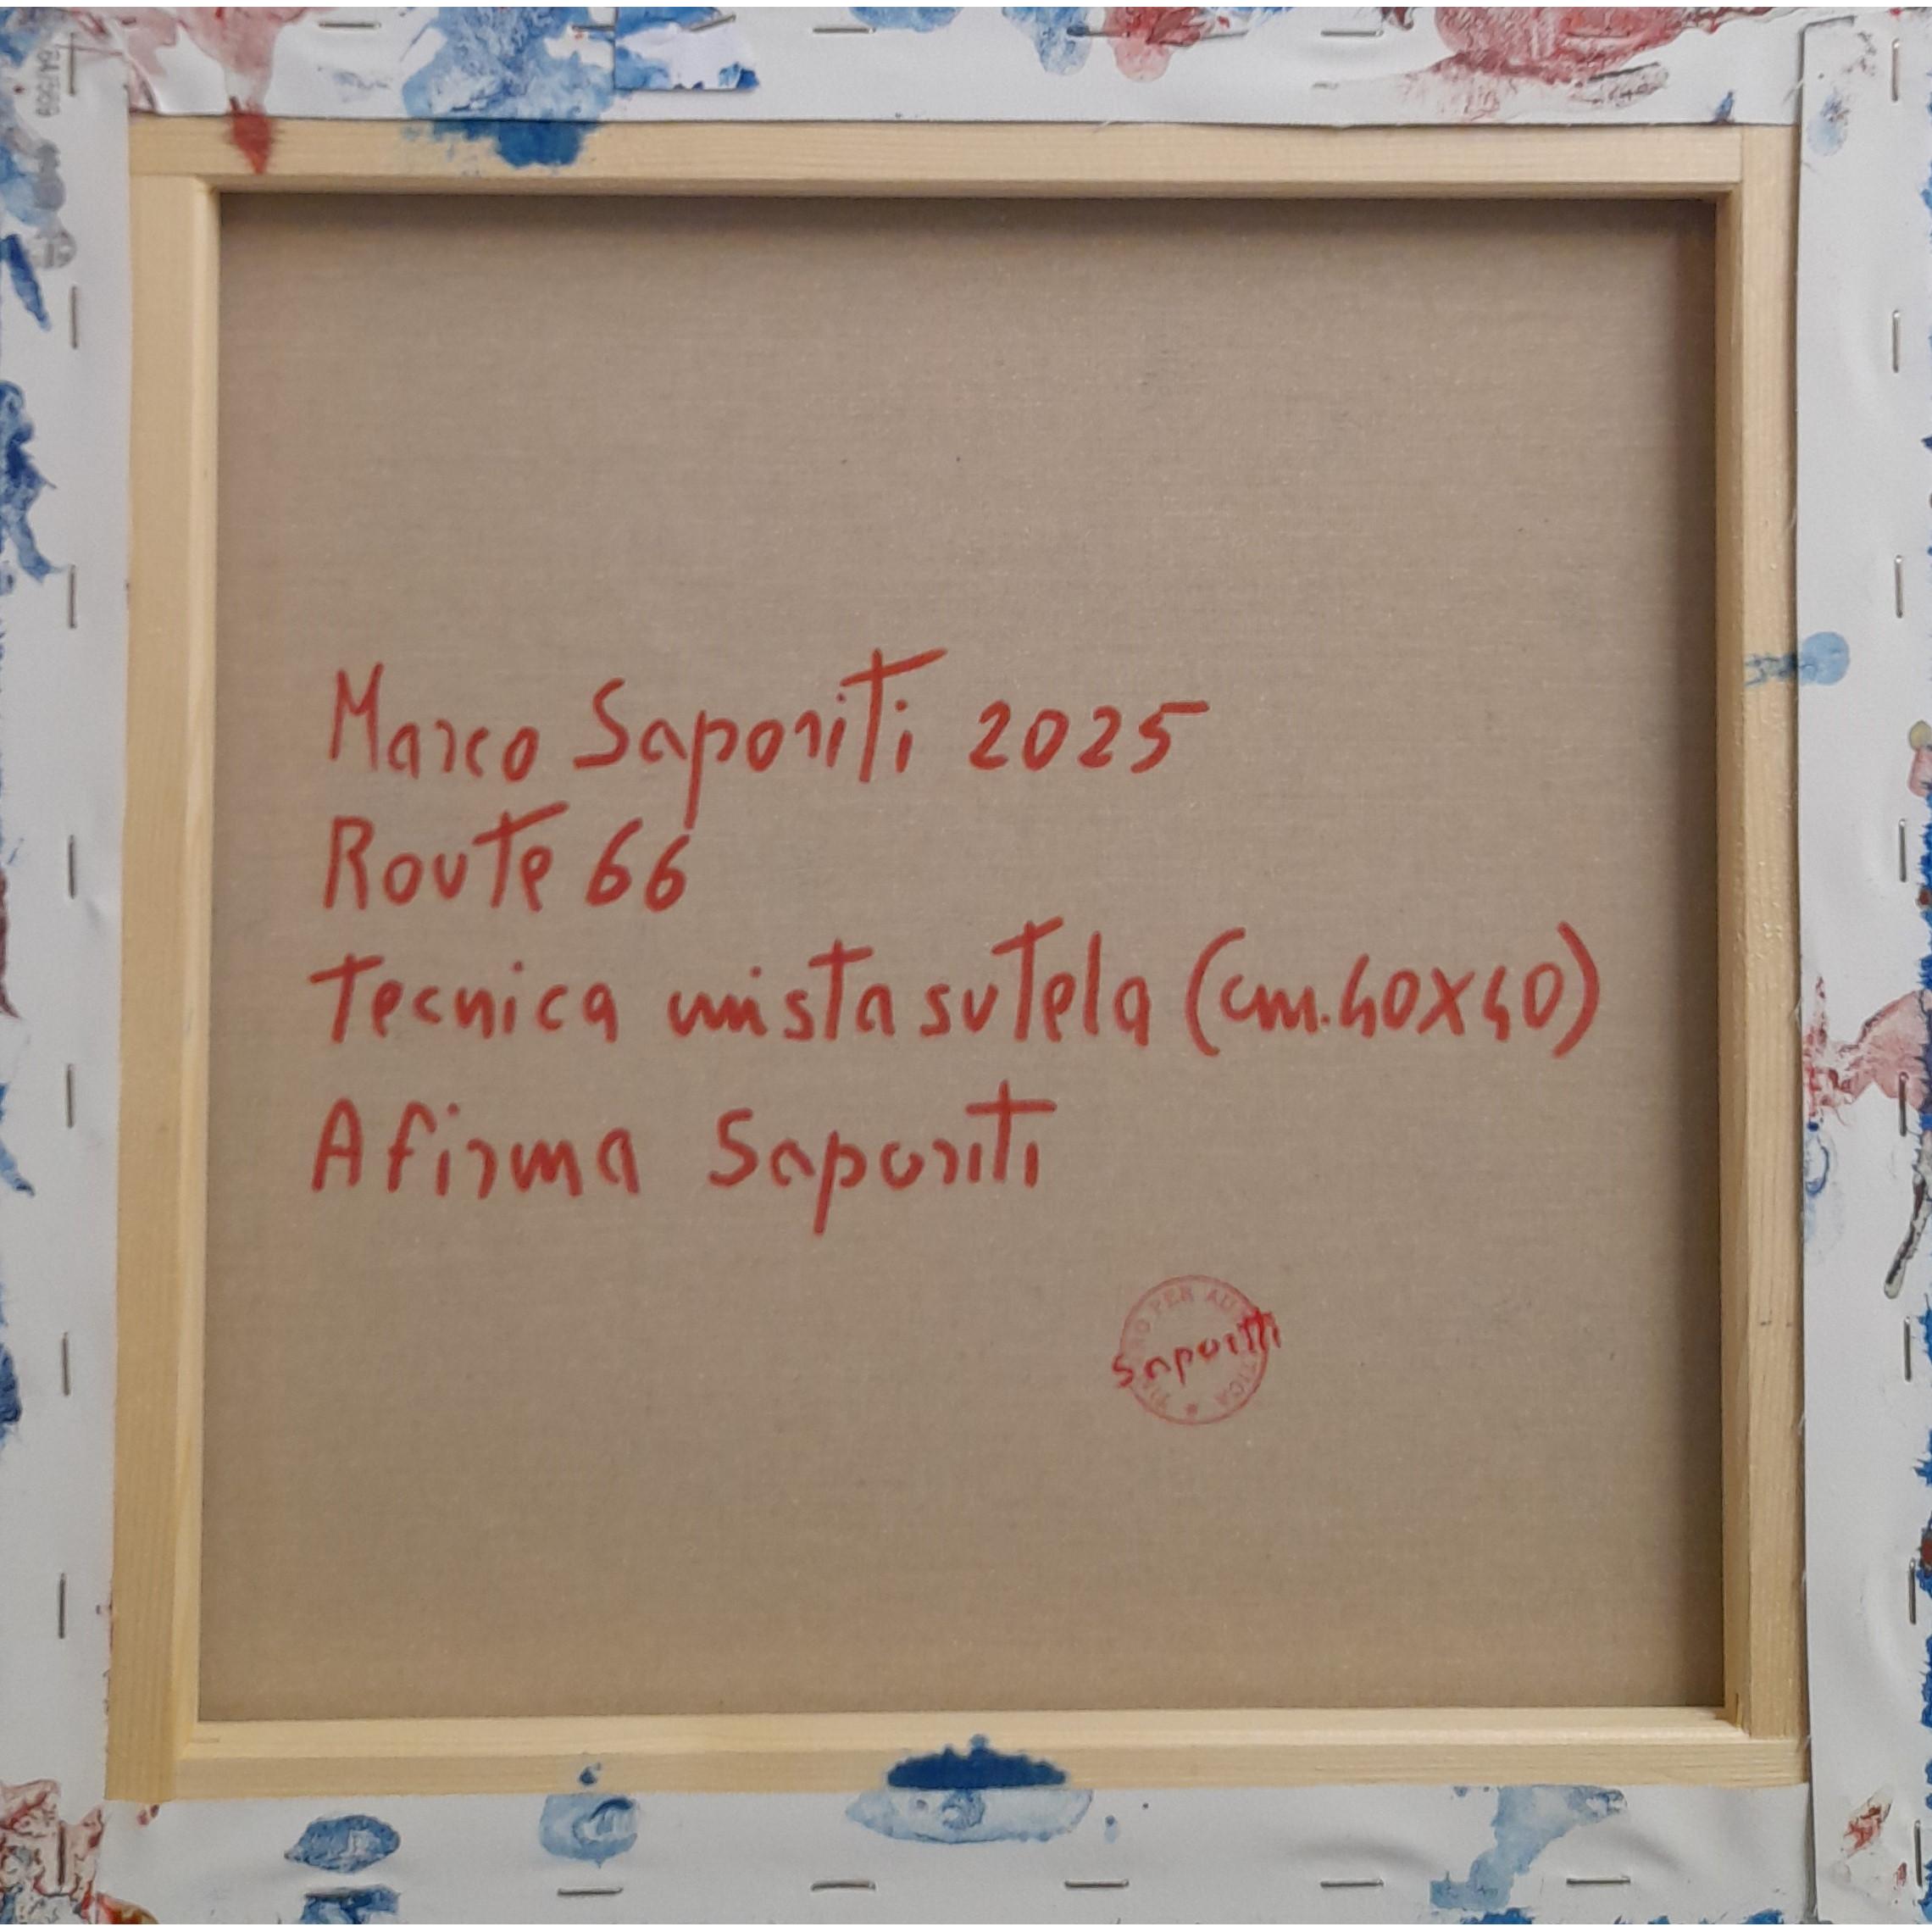 Marco Saporiti 2025
Route 66
Tecnica mista su tela (cm. 40x40)
A firma Saporiti
PER AU
Saporiti
TICA